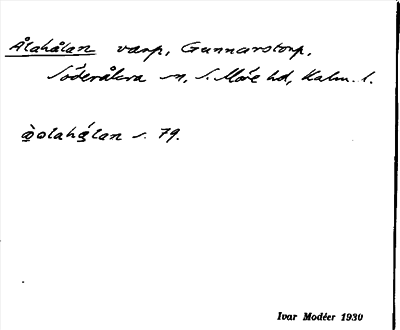 Ålahålan varp, Gunnarstorp,
Söderåkra sn, S. Möre hd, Kalm. l.
àolahálan s. 79.
Ivar Modéer 1930